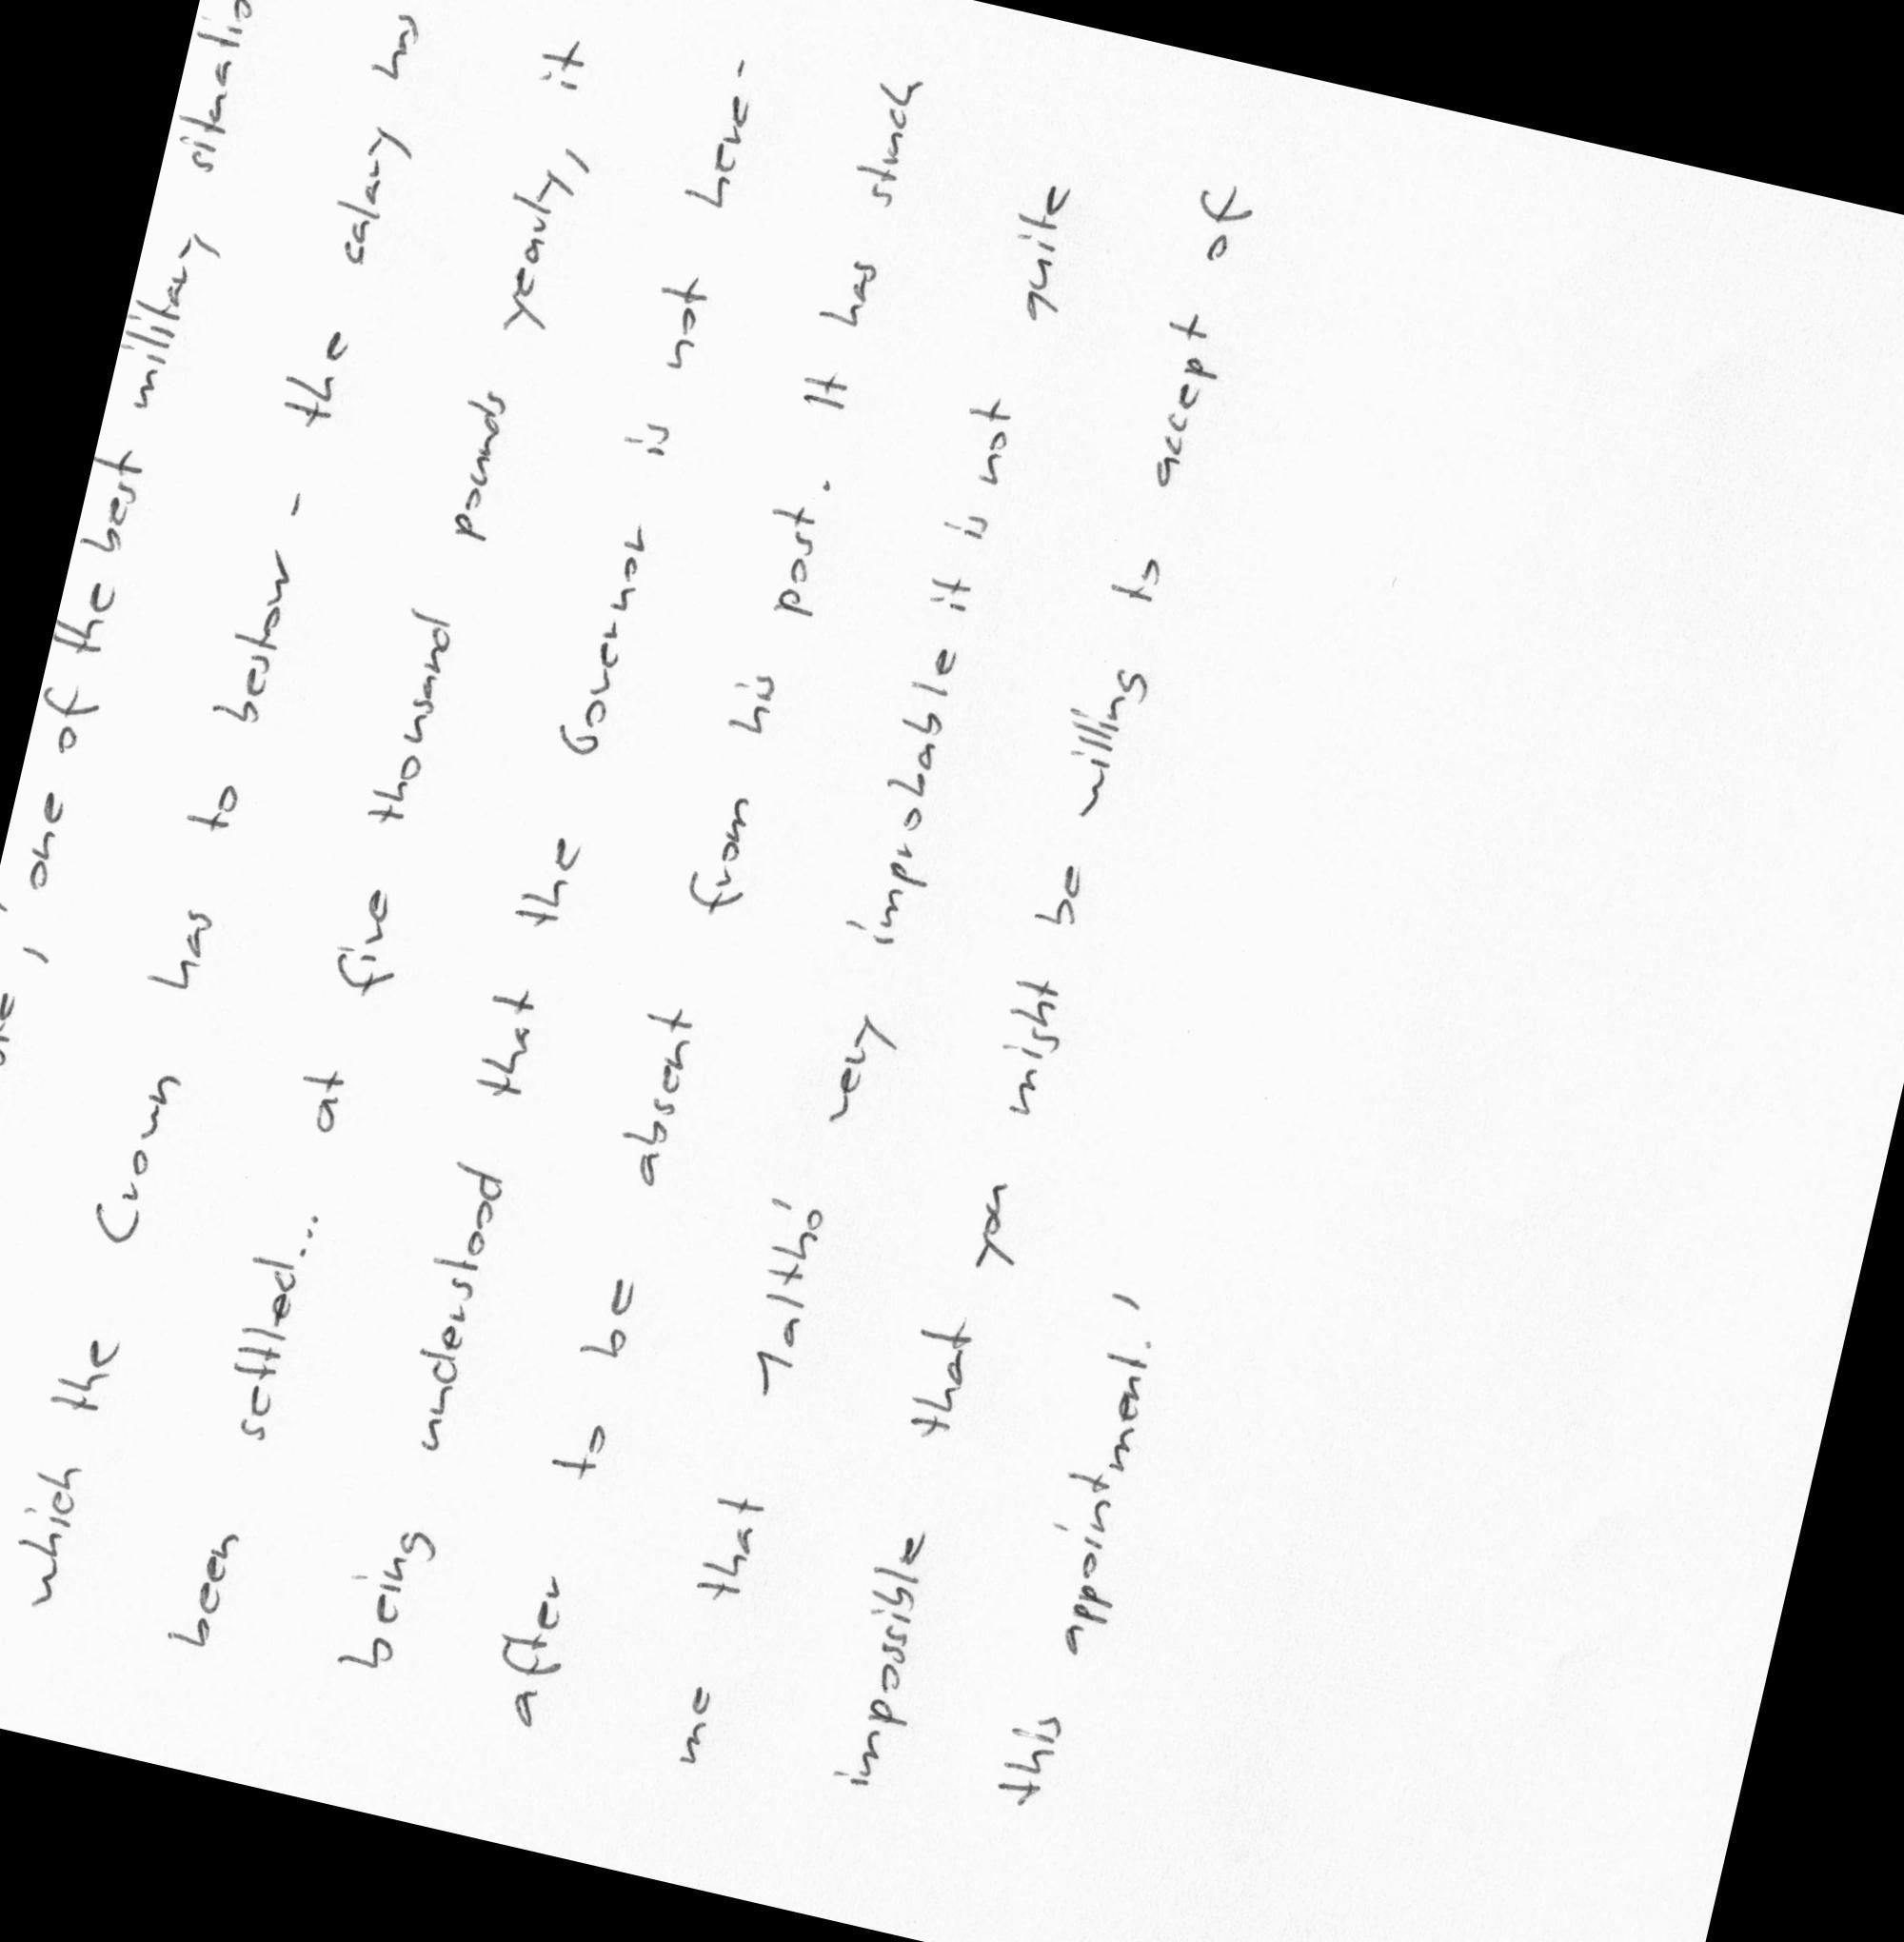 , one of the best military
which the Crown has to bestow - the calary has
been settled... at five thousand pounds yearly, it
being understood that the Governor is not here-
after to be absent from his post. It has struck
me that 7altho' very improbable it is not quite
impossible that you might be willing to accept of
this appointment.'